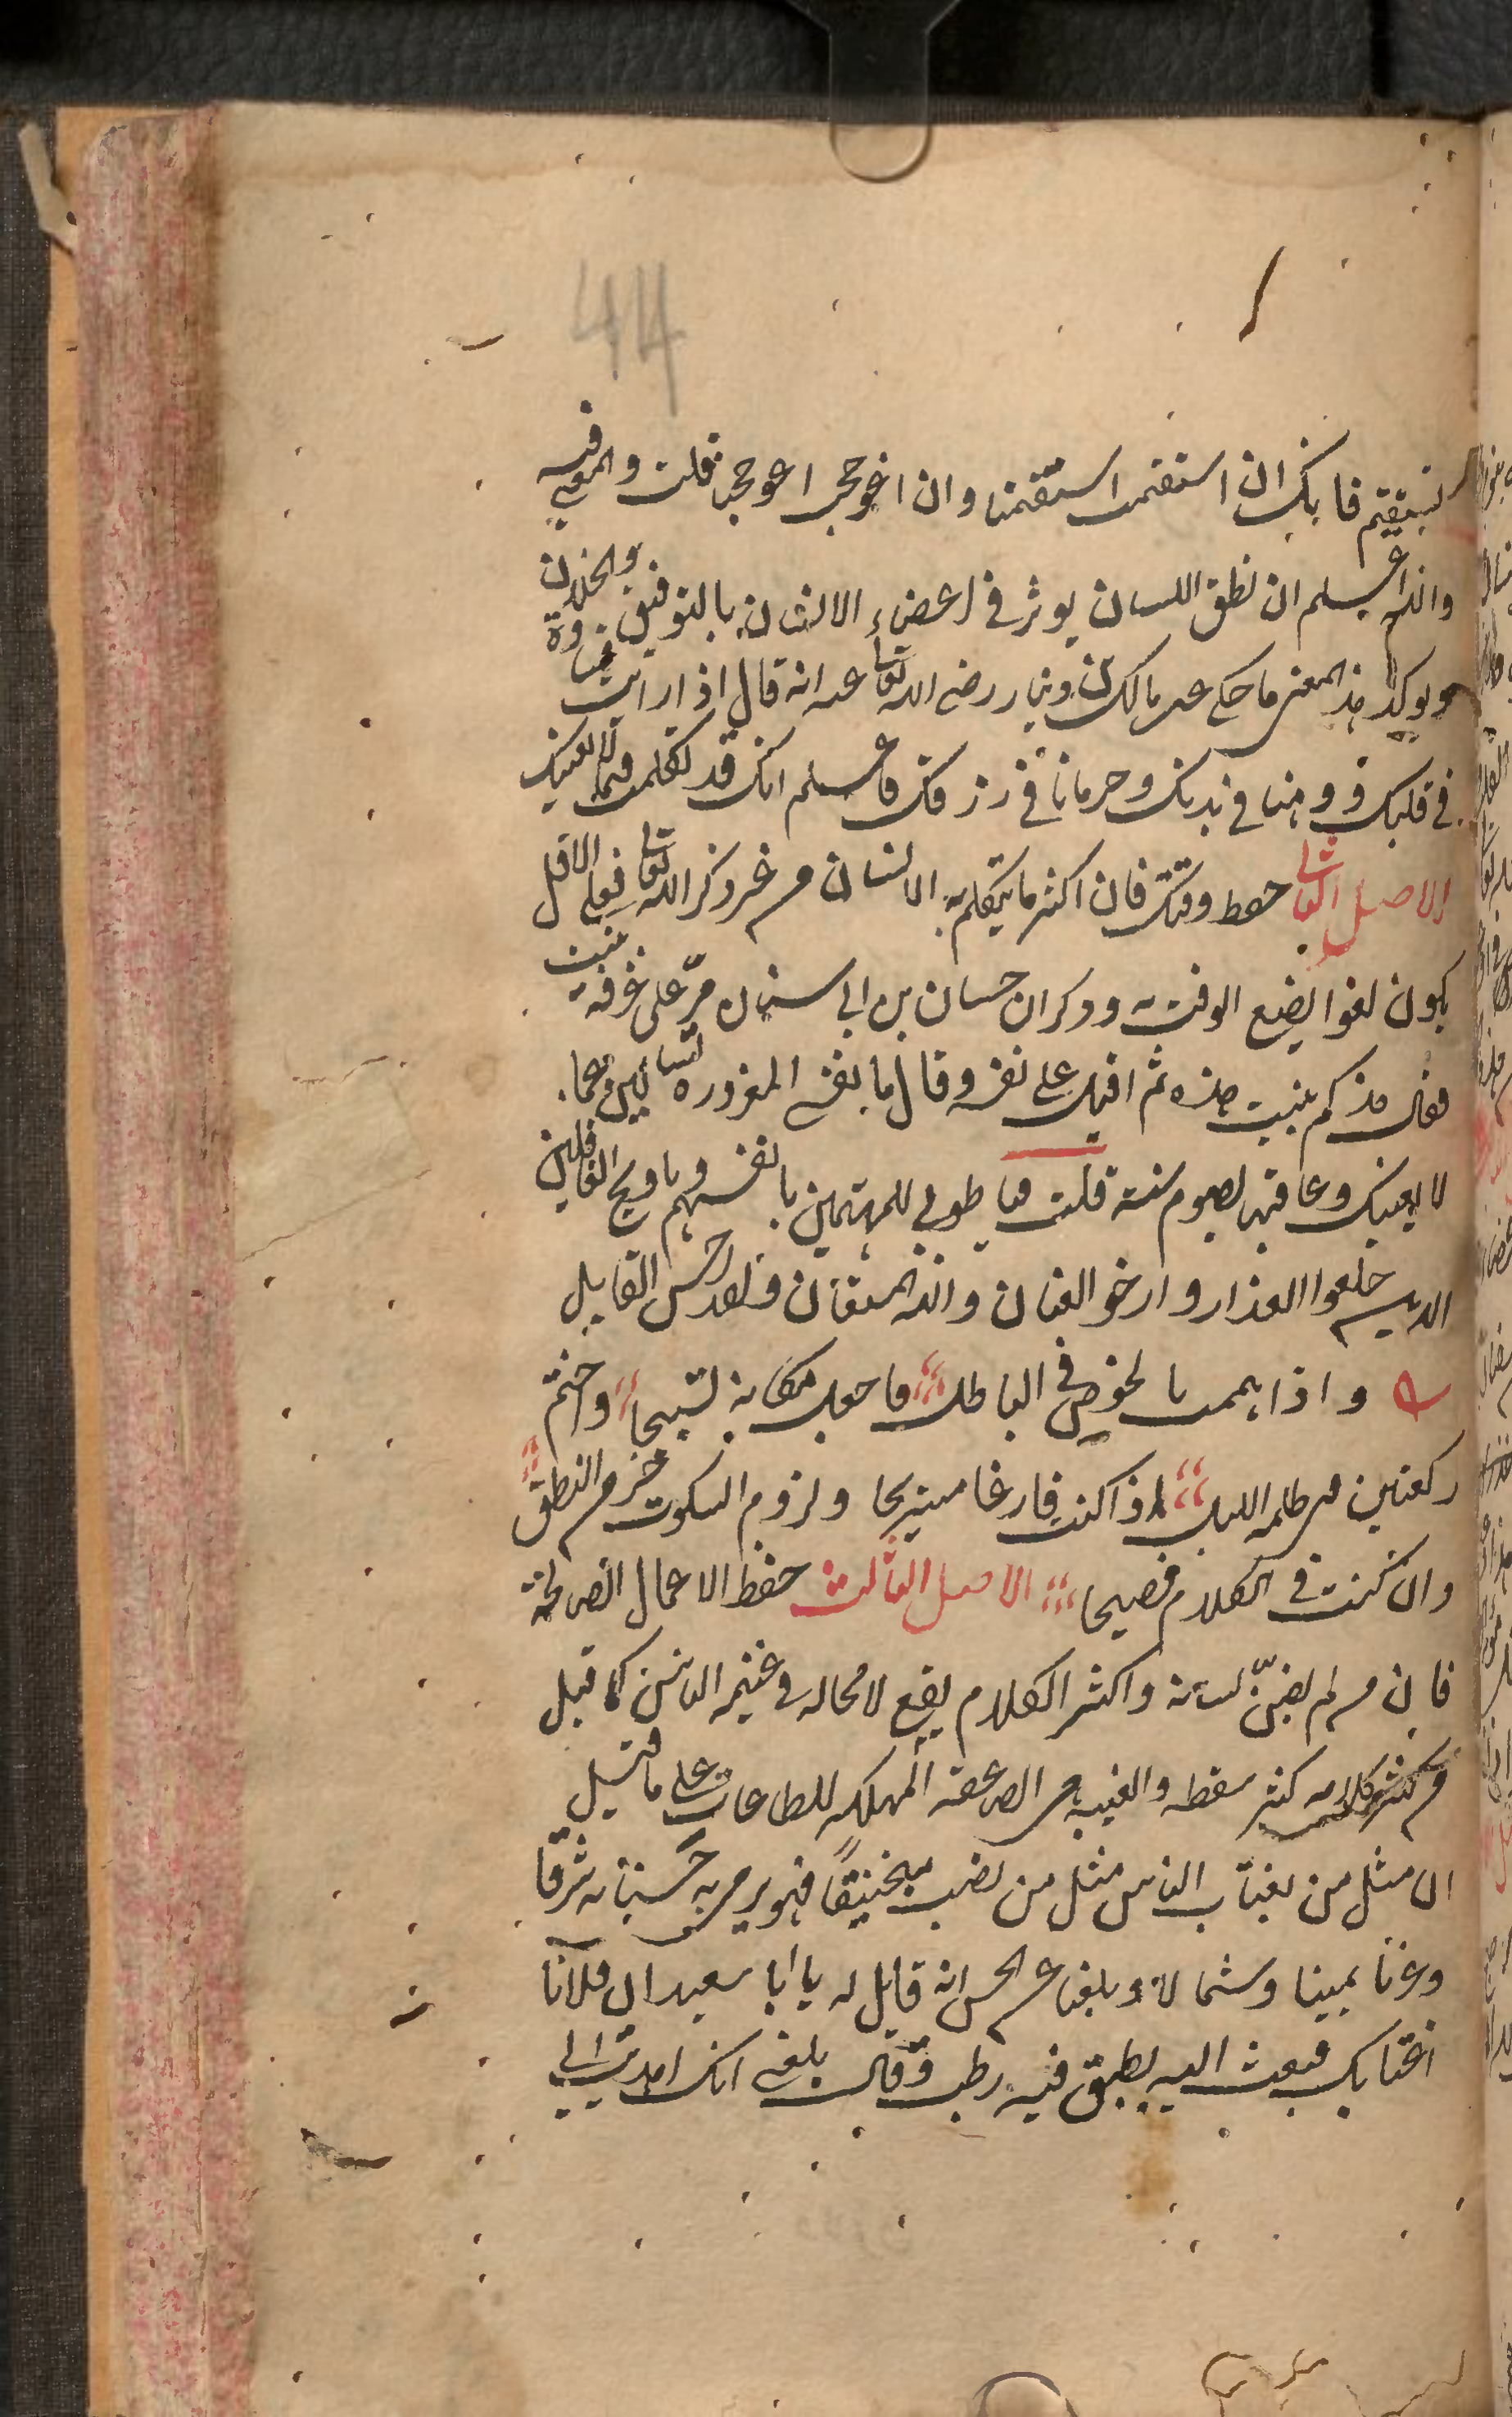 44
لتستقيم فانك ان استقمت استقمنا وان اعوججت اعوججنا قلت والمعنى فيه
والله اعلم ان نطق اللسان يوثر في اعضاء الانسان بالتوفيق والخذلان
ويوكد هذا المعنى ما حكي عن مالك بن دينار رضي الله تعالى عنه انه قال اذا رايت قساوة
في قلبك ووهنا في بدنك وحرمانا في رزقك فاعلم انك قد تكلمت فيما لا يعنيك
الاصل الثاني حفظ وقتك فان اكثر ما يتكلم به الانسان من غير ذكر الله تعالى فعلى الاقل
يكون لغوا يضيع الوقت به وذكر ان حسان بن ابي سنان مر على غرفة بنيت
فقال مذ كم بنيت هذه ثم اقبل على نفسه وقال يا نفسي المغرورة تسالين عما
لا يعنيك وعاقبها بصوم سنة قلت فيا طوبى للمهتمين بانفسهم ويا ويح الغافلين
الذين خلعوا العذار وارخوا العنان والله المستعان ولقد احسن القايل
واذا هممت بالخوض في الباطل فاجعل مكانه تسبيحا واغتنم
ركعتين في ظلمة الليل اذا كنت فارغا مستريحا ولزوم السكوت خير من النطق
وان كنت في الكلام فصيحا الاصل الثالث حفظ الاعمال الصالحة
فان من لم يصن لسانه واكثر الكلام يقع لا محالة في غيبة الناس كما قيل
من كثر كلامه كثر سقطه والغيبة هي الصاعقة المهلكة للطاعات على ما قيل
ان مثل من يغتاب الناس مثل من نصب منجنيقا فهو يرمي به حسناته شرقا
وغربا يمينا وشمالا وبلغنا عن الحسن انه قيل له يا ابا سعيد ان فلانا
اغتابك فبعث اليه بطبق فيه رطب وقال بلغني انك اهديت الي